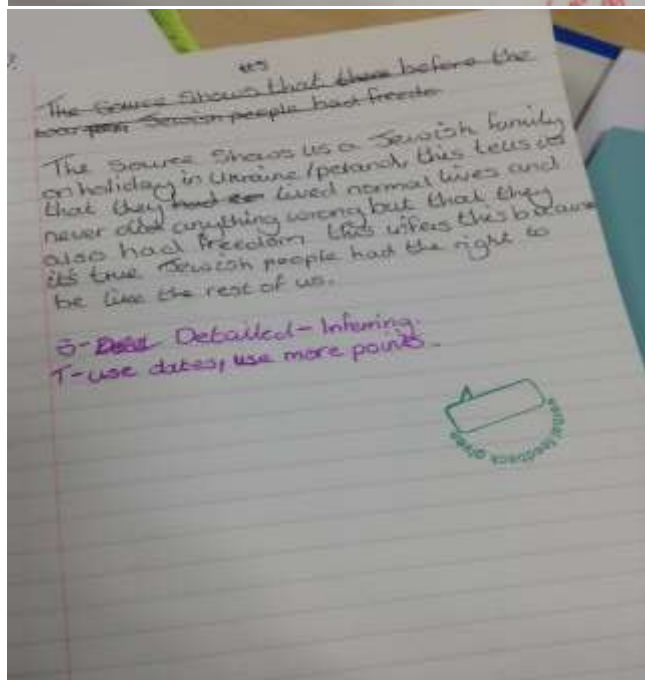 The Source Shows that there before the
war Jewish people had freedom
The source shows us a Jewish family
on holiday in Ukraine/poland, this tells us
that they had lived normal lives and
never did anything wrong but that they
also had freedom. this infers this because
it's true Jewish people had the right to
be like the rest of us.
S- Detailed - Inferring.
T-use dates, use more points.
verbal feedback given